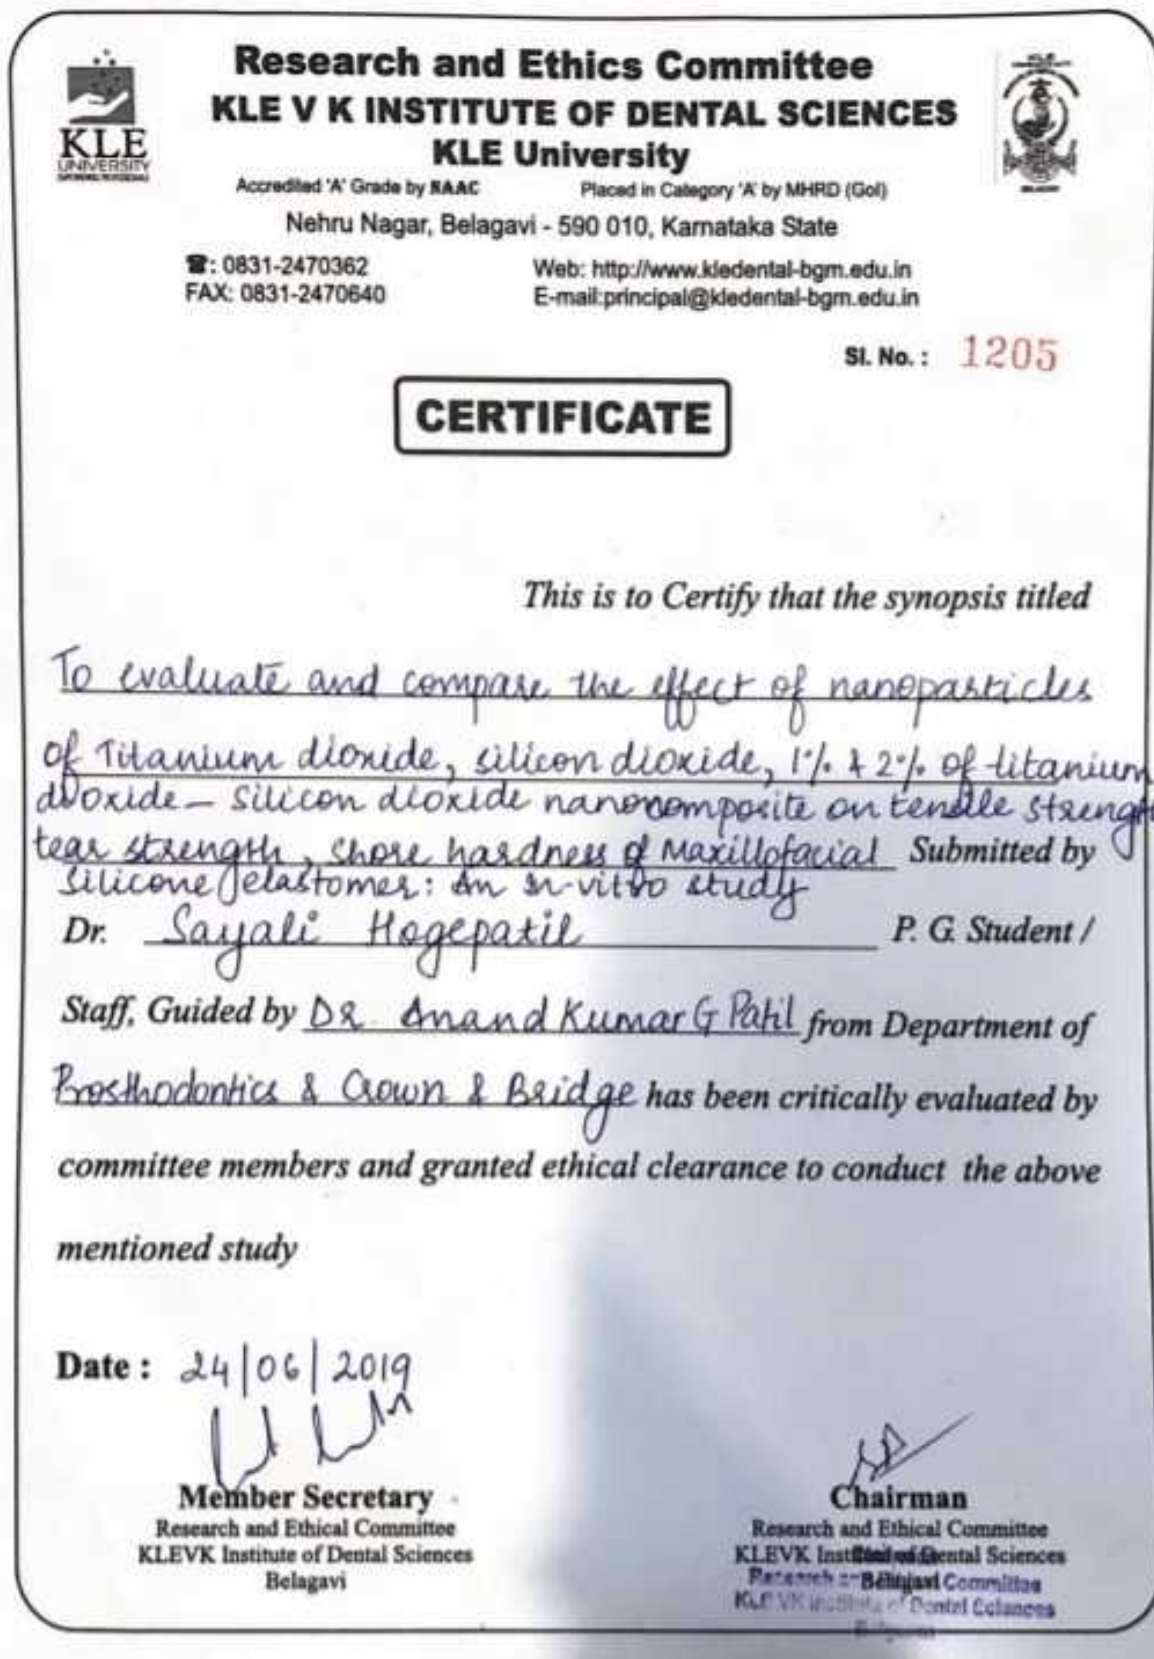 Research and Ethics Committee
KLE V K INSTITUTE OF DENTAL SCIENCES
KLE University
KLE
UNIVERSITY
Accredited 'A' Grade by NAAC Placed in Category 'A' by MHRD (GoI)
Nehru Nagar, Belagavi - 590 010, Karnataka State
☎: 0831-2470362 Web: http://www.kledental-bgm.edu.in
FAX: 0831-2470640 E-mail:principal@kledental-bgm.edu.in
Sl. No. : 1205
CERTIFICATE
This is to Certify that the synopsis titled
To evaluate and compare the effect of nanoparticles
of Titanium dioxide, silicon dioxide, 1% & 2% of titanium
dioxide - silicon dioxide nanocomposite on tensile strength
tear strength, shore hardness of Maxillofacial Submitted by
silicone elastomer: An In-vitro study
Dr. Sayali Hogepatil P. G. Student /
Staff, Guided by Dr. Anand Kumar G Patil from Department of
Prosthodontics & Crown & Bridge has been critically evaluated by
committee members and granted ethical clearance to conduct the above
mentioned study
Date : 24/06/2019
Member Secretary
Research and Ethical Committee
KLEVK Institute of Dental Sciences
Belagavi
Chairman
Research and Ethical Committee
KLEVK Institute of Dental Sciences
Belagavi
Research Committee
KLE VK Institute of Dental Sciences